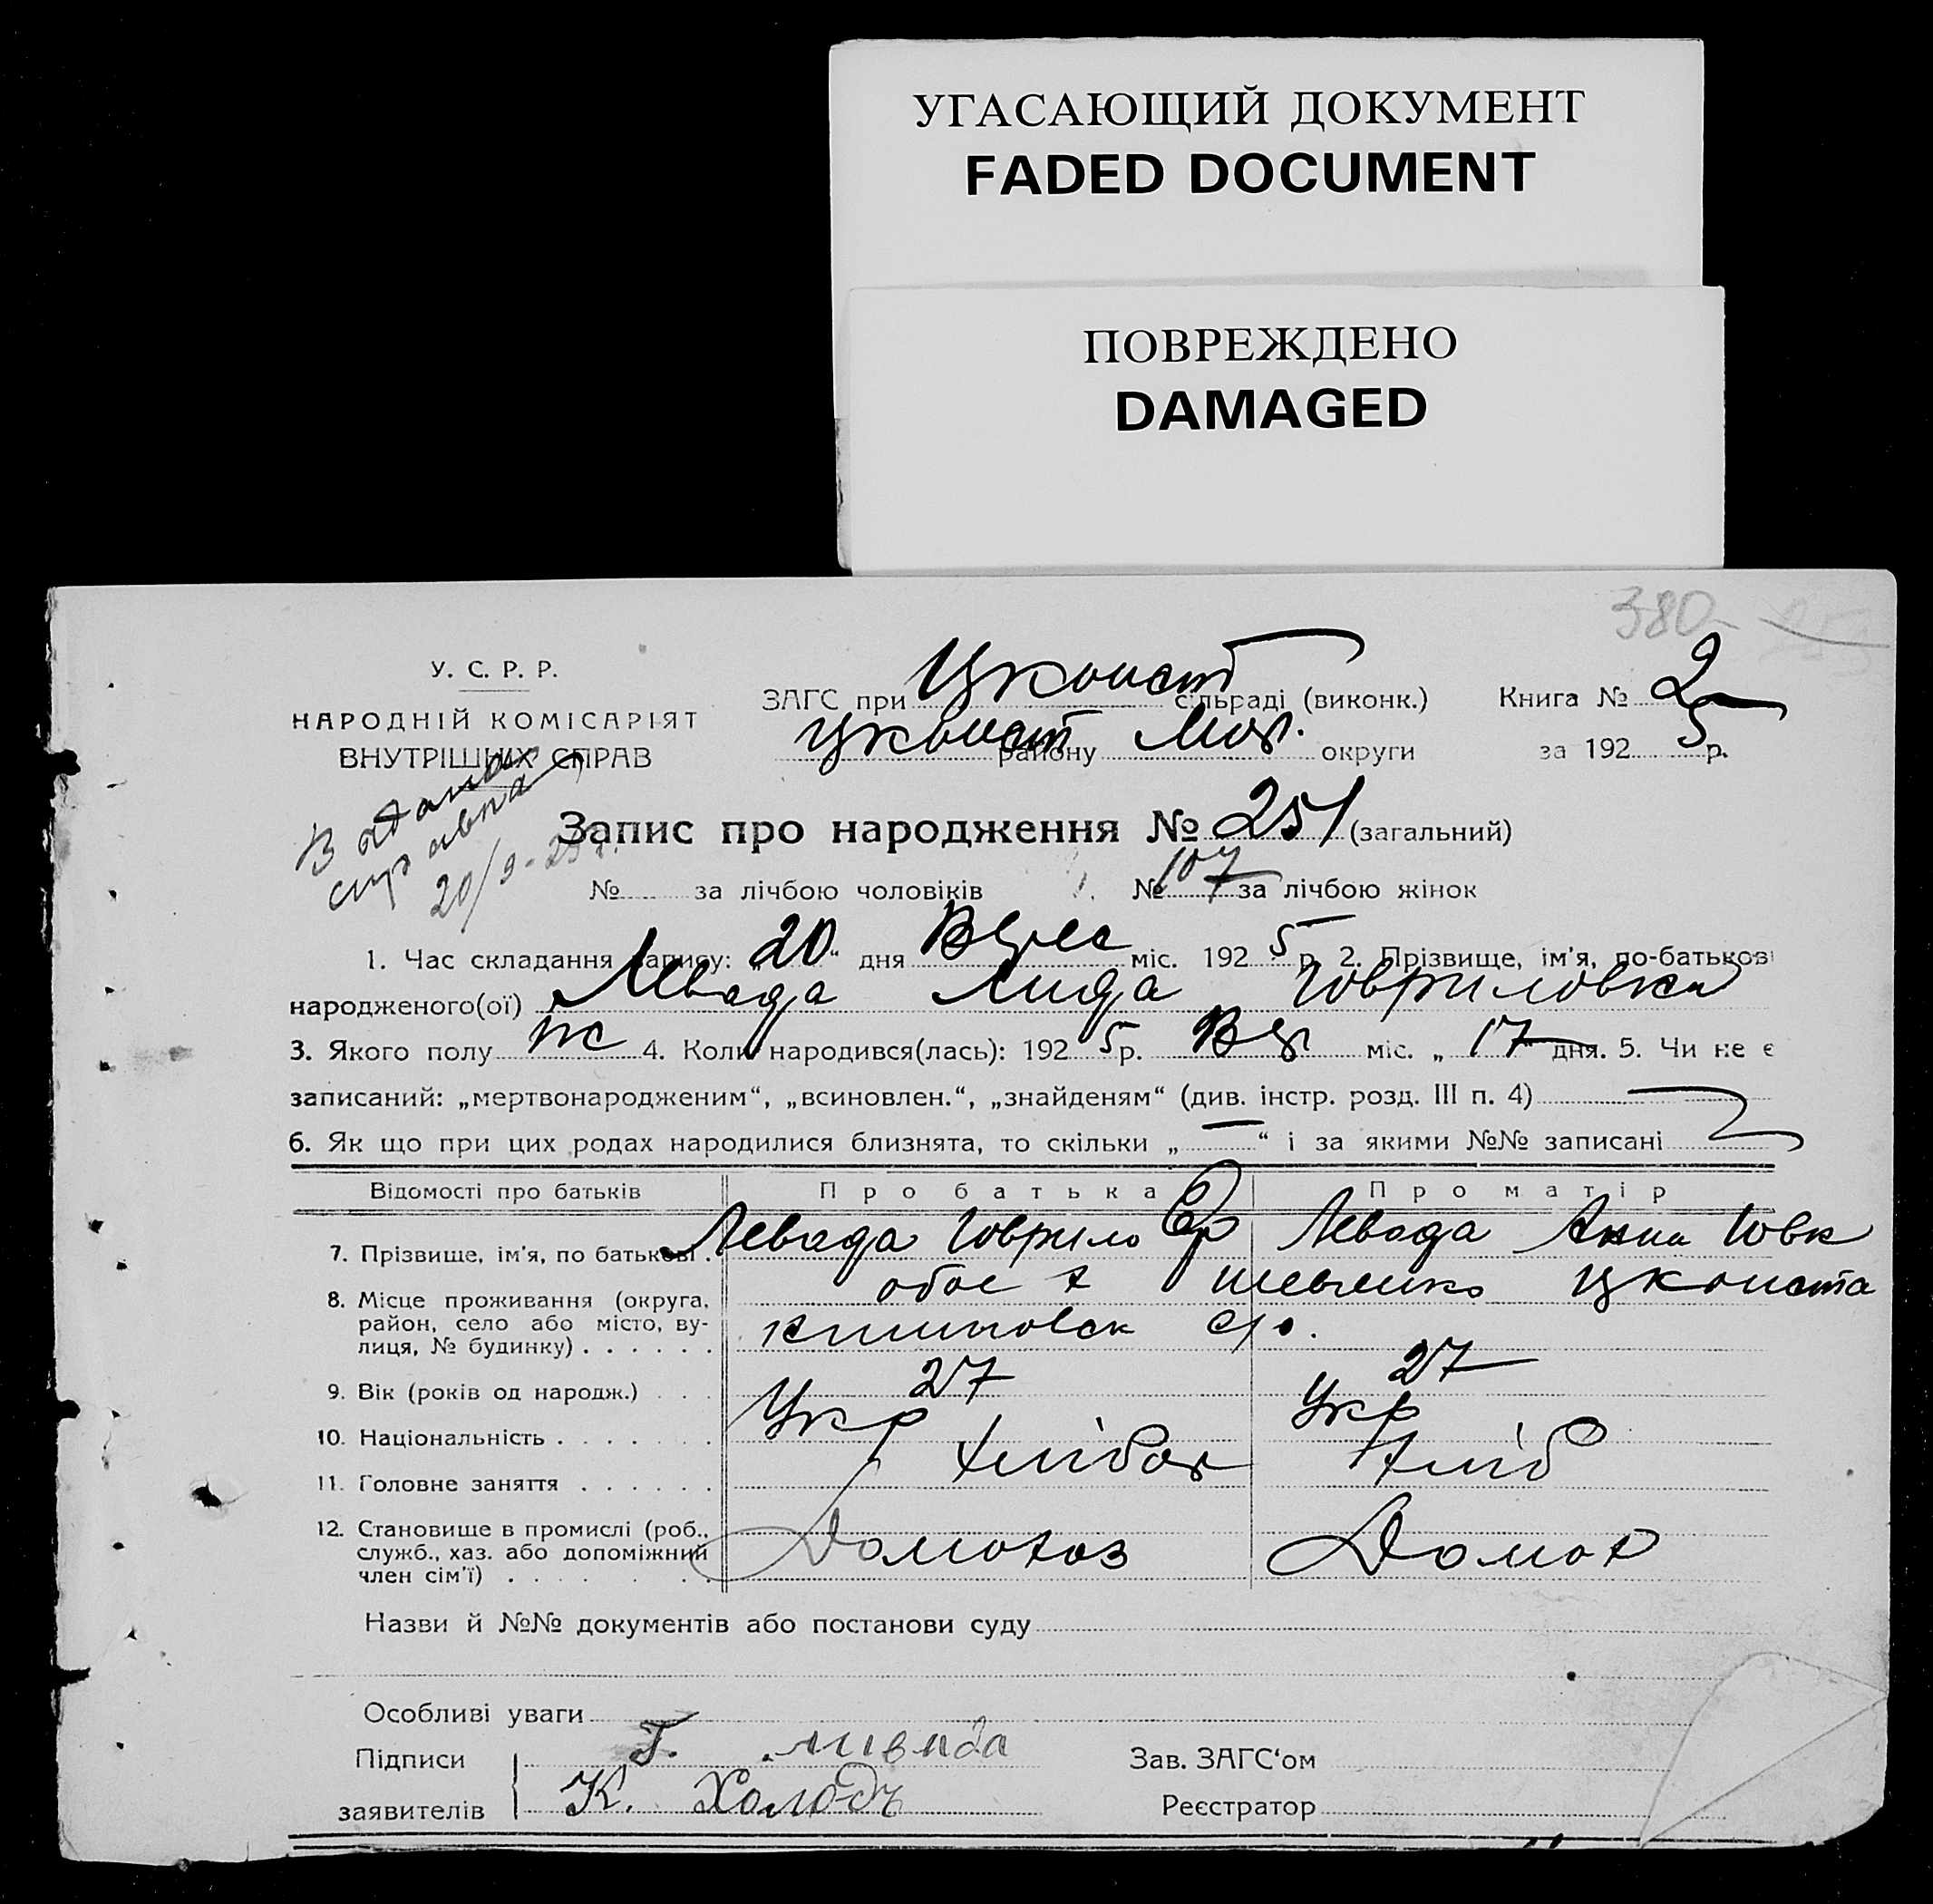 УГАСАЮЩИЙ ДОКУМЕНТ
FADED DOCUMENT
ПОВРЕЖДЕНО
DAMAGED
380
У. С. Р. Р.
НАРОДНІЙ КОМІСАРІЯТ
ВНУТРІШНІХ СПРАВ
ЗАГС при Цконст сільраді (виконк.) Книга № 2
Цконст району округи за 1925 р.
Видана
справка
20/9-25
Запис про народження № 251 (загальний)
№ за лічбою чоловіків № 107 за лічбою жінок
1. Час складання запису: „20“ дня Верес міс. 1925 р. 2. Прізвище, ім'я, по-батькові
народженого(ої) Левада Лида Говриловна
3. Якого полу ж 4. Коли народився(лась): 1925 р. Вер міс. „17“ дня. 5. Чи не є
записаний: „мертвонародженим“, „всиновлен.“, „знайденям“ (див. інстр. розд. III п. 4)
6. Як що при цих родах народилися близнята, то скільки „—“ і за якими №№ записані
Відомості про батьків Про батька Про матір
7. Прізвище, ім'я, по батькові . Левада Говрило Левада Анна
8. Місце проживання (округа, район, село або місто, вулиця, № будинку) . . . . . .
9. Вік (років од народж.) . . . 27 27
10. Національність . . . . . . . Укр Укр
11. Головне заняття . . . . . . Хлібор Хліб
12. Становище в промислі (роб., служб., хаз. або допоміжний член сім'ї) . . . . . . Домохоз Домох
Назви й №№ документів або постанови суду
Особливі уваги
Підписи Г. ливада Зав. ЗАГС'ом
заявителів К. Холодъ Реєстратор